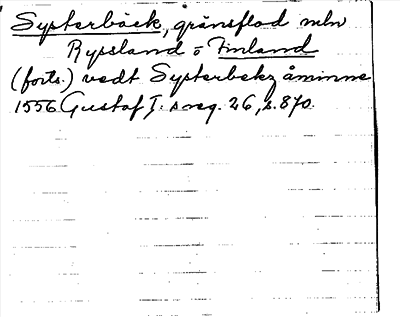 Systerbäck, gränsflod mln
Ryssland o Finland
(forts.) vedt Systerbekz åminne
1556 Gustaf I:s reg. 26, s. 870.